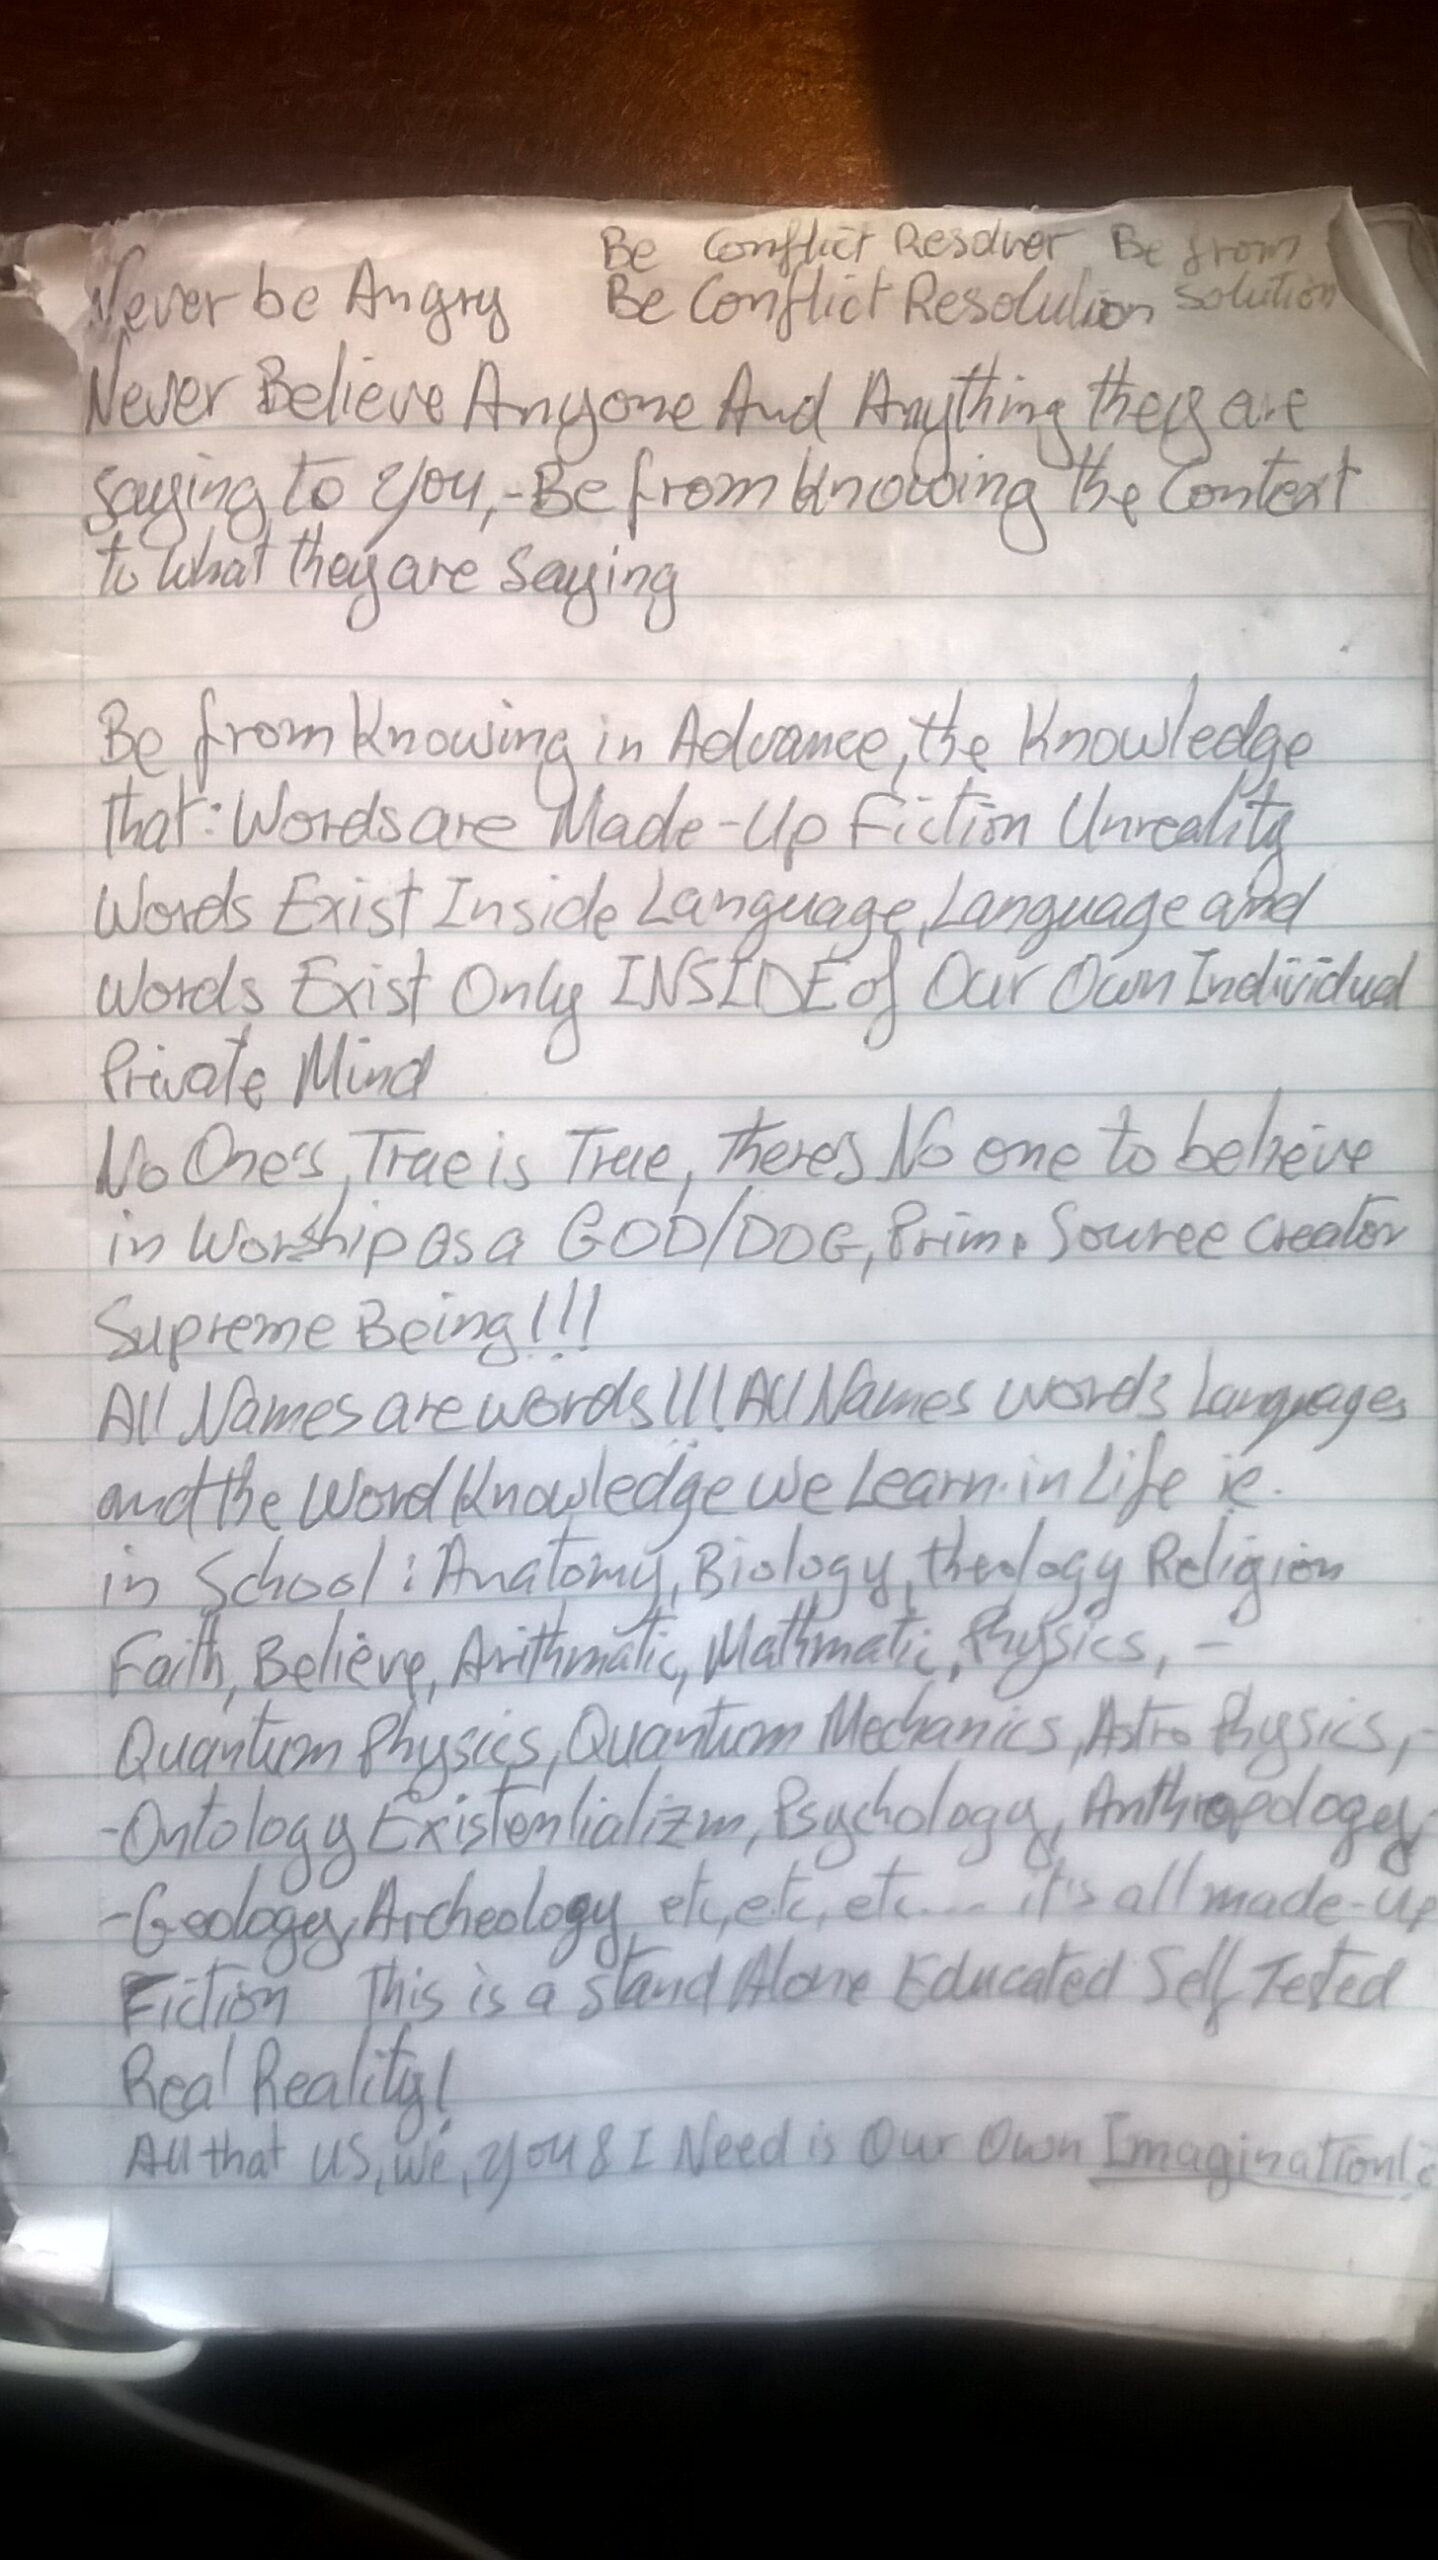 Be Conflict Resolver Be from
Never be Angry Be Conflict Resolution solution
Never Believe Anyone And Anything they are
saying to you,-Be from knowing the Context
to what they are saying
Be from knowing in Advance, the Knowledge
that: Words are Made-Up Fiction Unreality
Words Exist Inside Language, Language and
Words Exist Only INSIDE of Our Own Individual
Private Mind
No One's, True is True, there's No one to believe
in Worship as a GOD/DOG, Prime Source Creator
Supreme Being!!!
All Names are words!!! All Names words Languages
and the Word Knowledge we Learn in Life ie.
in School: Anatomy, Biology, theology Religion
Faith, Believe, Arithmatic, Mathmatic, Physics, -
Quantum Physics, Quantum Mechanics, Astro Physics, -
-Ontology Existenlializm, Psychology, Anthropology,
-Geology, Archeology, etc, etc, etc.... it's all made-up
Fiction This is a stand Alone Educated Self Tested
Real Reality!
All that US, We, you & I Need is Our Own Imagination!